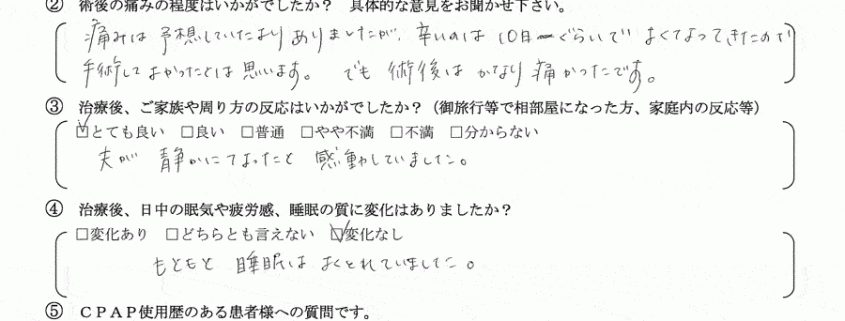 ② 術後の痛みの程度はいかがでしたか？ 具体的な意見をお聞かせ下さい。
痛みは予想していたよりありましたが、辛いのは10日ーぐらいでよくなってきたので
手術してよかったとは思います。 でも 術後は かなり痛かったです。
③ 治療後、ご家族や周り方の反応はいかがでしたか？（御旅行等で相部屋になった方、家庭内の反応等）
☑とても良い □良い □普通 □やや不満 □不満 □分からない
夫が 静かになったと 感動していました。
④ 治療後、日中の眠気や疲労感、睡眠の質に変化はありましたか？
□変化あり □どちらとも言えない ☑変化なし
もともと 睡眠は よくとれていました。
⑤ ＣＰＡＰ使用歴のある患者様への質問です。